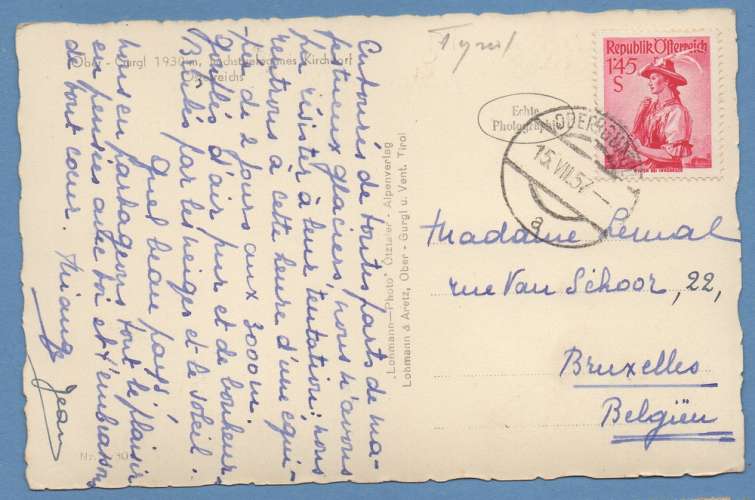 Tyrol
Ober - Gurgl 1930 m, höchstgelegenes Kirchdorf
Österreichs
Entourés de toutes parts de ma-
jestueux glaciers, nous n'avons
pu résister à leur tentation: nous
rentrons à cette heure d'une équi-
pée de 2 jours aux 3000 m.
gonflés d'air pur et de bonheur.
Brûlés par les neiges et le soleil.
Quel beau pays!
Nous en partageons tout le plaisir
en pensées avec toi et t'embrassons
de tout coeur.
Jean
"Lohmann-Photo" Ötztaler - Alpenverlag
Lohmann & Aretz, Ober - Gurgl u. Vent, Tirol
Nr.
Echte
Photographie
Republik Österreich
1'45
S
OBERGURGL
15.VIII.57
a
Madame Lemal
rue Van Schoor, 22,
Bruxelles
Belgien